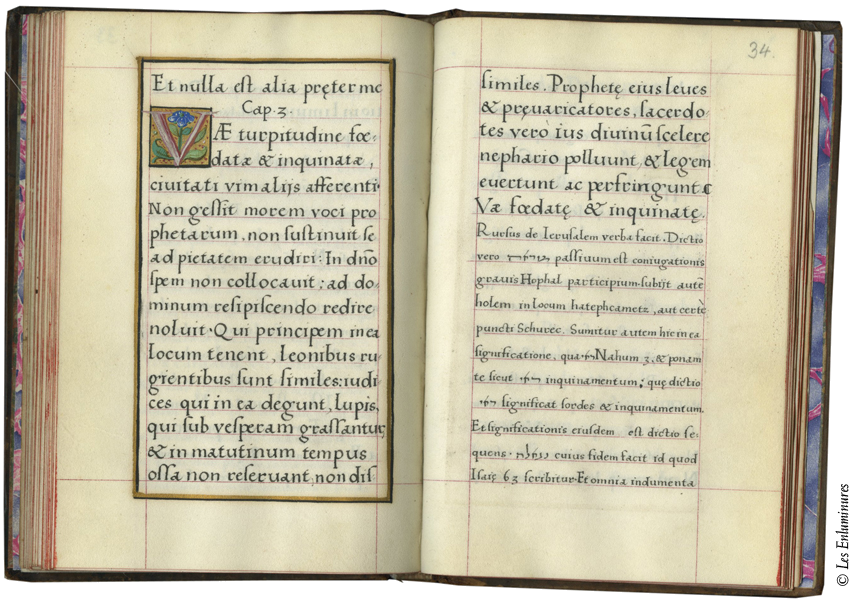 Et nulla est alia pręter me
Cap. 3.
VÆ turpitudine fœ-
datæ & inquinatæ,
ciuitati vim alijs afferenti.
Non gessit morem voci pro
phetarum, non sustinuit se
ad pietatem erudiri: In dño
spem non collocauit: ad do-
minum resipiscendo redire
noluit. Qui principem in ea
locum tenent, leonibus ru-
gientibus sunt similes: iudi-
ces qui in ea degunt, lupis,
qui sub vesperam grassantur,
& in matutinum tempus
ossa non reseruant, non dis-
34.
similes. Prophetę eius leues
& pręuaricatores, sacerdo-
tes verò ius diuinū scelere
nephario polluunt, & legem
euertunt ac perfringunt
Væ fœdatę & inquinatę.
Rursus de Ierusalem verba facit. Dictio
vero passiuum est coniugationis
grauis Hophal participium. subijt autē
holem in locum hatephcametz, aut certè
puncti Schurec. Sumitur autem hic in ea
significatione, qua Nahum 3, & ponam
te sicut inquinamentum; quę dictio
significat sordes & inquinamentum.
Et significationis eiusdem est dictio se-
quens. cuius fidem facit id quod
Isaię 63 scribitur. Et omnia indumenta
© Les Enluminures